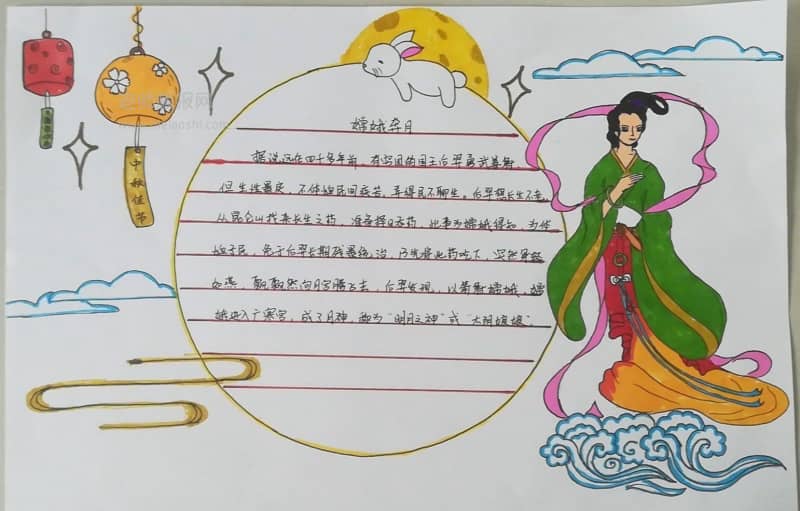 嫦娥奔月
据说远在四千多年前，有穷国的国王后羿勇武善射
但生性暴戾，不体恤民间疾苦，弄得民不聊生。后羿想长生不老
从昆仑山找来长生之药，准备择日吞药，此事为嫦娥得知，为体
恤子民，免于后羿长期残暴统治，乃先将此药吃下，突然身轻
如燕，飘飘然向月宫腾飞去，后羿发现，以箭射嫦娥，嫦
娥进入广寒宫，成了月神，即为“明月之神”或“太阴娘娘”
中秋佳节